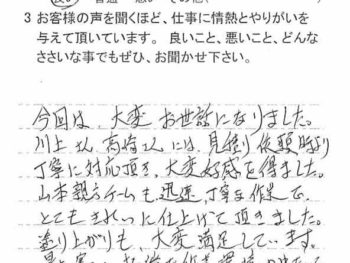 3 お客様の声を聞くほど、仕事に情熱とやりがいを
与えて頂いています。 良いこと、悪いこと、どんな
ささいな事でもぜひ、お聞かせ下さい。
今回は、大変お世話になりました。
川上さん、高崎さんには、見積り依頼時より
丁寧に対応頂き、大変好感を得ました。
山本親方チームも、迅速、丁寧な作業で、
とてもきれいに仕上げて頂きました。
塗り上がりも、大変満足しています。